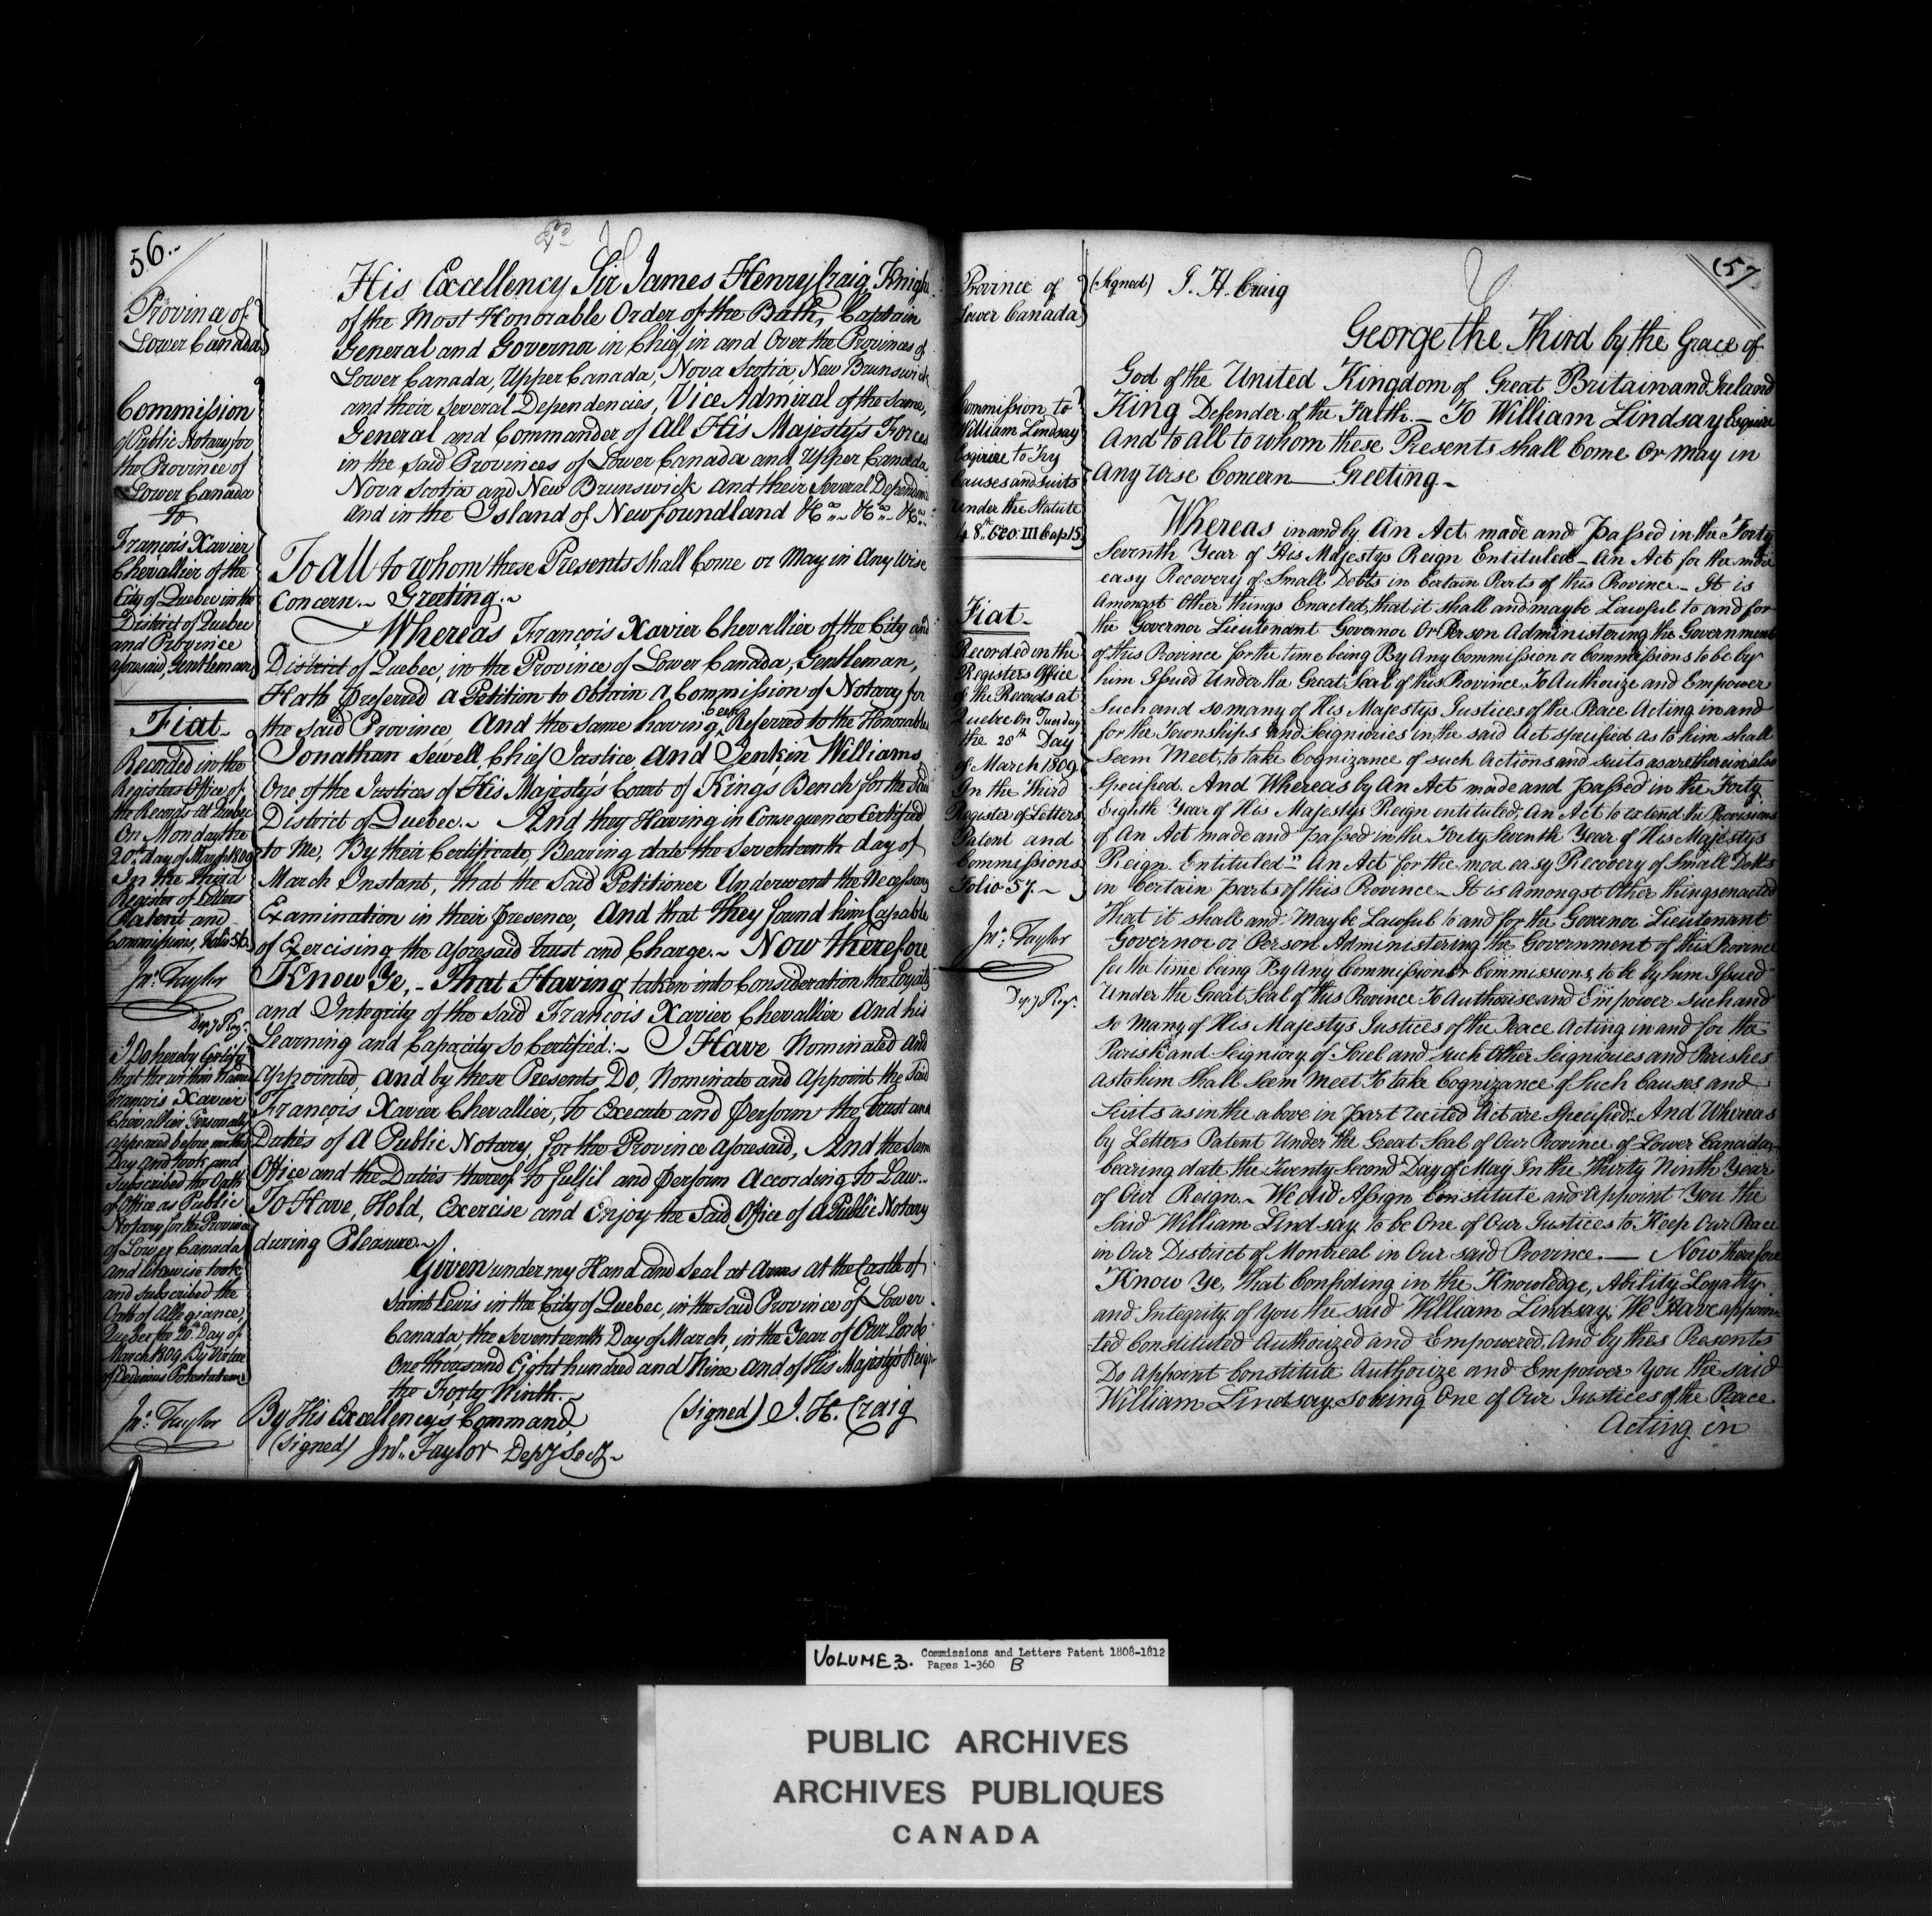 56.
Province of
Lower Canada
Commission
of Public Notary for
the Province of
Lower Canada
To
François Xavier
Chevallier of the
City of Quebec in the
District of Quebec
and Province
aforesaid, Gentleman
Fiat
Recorded in the
Registers Office of
the Records at Quebec
On Monday the
20th day of March 1809
In the third
Register of Letters
Patent and
Commissions, Folio 56.
Jnº. Taylor
Depy Regr.
I Do hereby Certify
that the within Named
François Xavier
Chevallier Personally
appeared before me this
Day and took and
Subscribed the Oath
of Office as Public
Notary for the Province
of Lower Canada
and likewise took
and subscribed the
Oath of Allegiance,
Quebec the 20th Day of
March 1809, By Virtue
of Dedimus Potestatem
Jnº. Taylor
His Excellency Sir James Henry Craig, Knight
of the Most Honorable Order of the Bath, Captain
General and Governor in Chief in and Over the Provinces of
Lower Canada, Upper Canada, Nova Scotia, New Brunswick
and their several Dependencies, Vice Admiral of the same,
General and Commander of All His Majesty's Forces
in the said Provinces of Lower Canada and Upper Canada
Nova Scotia and New Brunswick and their Several Dependencies
and in the Island of Newfoundland &ca. &ca. &ca.
To all to whom these Presents shall Come or May in Any Wise
Concern. ~ Greeting. ~
Whereas François Xavier Chevallier of the City and
District of Quebec, in the Province of Lower Canada, Gentleman,
Hath preferred a Petition to obtain a Commission of Notary for
the said Province, And the same having been Referred to the Honorable
Jonathan Sewell, Chief Justice, and Jenkin Williams
One of the Justices of His Majesty's Court of Kings Bench for the said
District of Quebec. ~ And they Having in Consequence Certified
to Me, By their Certificate, Bearing date the Seventeenth day of
March Instant, that the Said Petitioner Underwent the Necessary
Examination in their presence, And that They found him Capable
of Exercising the aforesaid Trust and Charge. ~ Now therefore
Know Ye, - That Having taken into Consideration the Loyalty
and Integrity of the Said François Xavier Chevallier And his
Learning and Capacity so Certified: ~ I Have Nominated and
appointed, and by these Presents Do, Nominate and Appoint the Said
François Xavier Chevallier, To Execute and perform the Trust and
Duties of A Public Notary, for the Province aforesaid, And the same
Office and the Duties thereof to fulfil and perform According to Law. ~
To Have, Hold, Exercise and Enjoy the Said Office of A Public Notary
during Pleasure. ~
Given under my Hand and Seal at Arms at the Castle of
Saint Lewis in the City of Quebec, in the said Province of Lower
Canada, the Seventeenth Day of March, in the Year of Our Lord
One thousand Eight hundred and Nine and of His Majesty's Reign
the Forty Ninth. ~
By His Excellency's Command, (signed) J. H. Craig
(signed) Jnº. Taylor Depy Secy. ~
57
Province of
Lower Canada
Commission to
William Lindsay
Esquire to Try
Causes and Suits
Under the Statute
48th. Geo: III Cap 15
Fiat
Recorded in the
Registers Office
of the Records at
Quebec On Tuesday
the 28th Day
of March 1809
In the Third
Register of Letters
Patent and
Commissions
Folio 57. ~
Jnº. Taylor
Dpy Regr.
(Signed) J. H. Craig
George the Third by the Grace of
God of the United Kingdom of Great Britain and Ireland
King Defender of the Faith. ~ To William Lindsay Esquire
And to All to whom these Presents shall Come Or May in
Any Wise Concern — Greeting ~
Whereas in and by An Act made and passed in the Forty
Seventh Year of His Majestys Reign Entituled - An Act for the more
easy Recovery of Small Debts in Certain Parts of this Province - It is
Amongst Other things Enacted, that it shall and may be Lawful to and for
the Governor Lieutenant Governor Or Person Administering the Government
of this Province for the time being By Any Commission or Commissions to be by
him Issued Under the Great Seal of this Province, To Authorize and Empower
Such and so many of His Majestys Justices of the Peace Acting in and
for the Townships And Seigniories in the said Act specified as to him shall
Seem Meet, to take Cognizance of such Actions and suits as are therein also
Specified. And Whereas by An Act made and passed in the Forty
Eighth Year of His Majestys Reign entituled, An Act to extend the Provisions
of An Act made and passed in the Forty Seventh Year of His Majestys
Reign Entituled " An Act for the more easy Recovery of Small Debts
in Certain parts of this Province - It is Amongst Other things enacted
That it shall and may be Lawful to and for the Governor Lieutenant
Governor or Person Administering the Government of this Province
for the time being By Any Commission Or Commissions, to be by him Issued
Under the Great Seal of this Province To Authorise and Empower such and
so many of His Majestys Justices of the Peace Acting in and for the
Parish and Seigniory of Sorel and such Other Seigniories and Parishes
as to him Shall Seem Meet To take Cognizance of Such Causes and
Suits as in the above in part recited Act are Specified: And Whereas
by Letters Patent Under the Great Seal of Our Province of Lower Canada,
bearing date the Twenty Second Day of May In the Thirty Ninth Year
of Our Reign. ~ We did Assign Constitute and Appoint You the
Said William Lindsay, to be One of Our Justices to Keep Our Peace
in Our District of Montreal in Our said Province. — Now therefore
Know Ye, That Confiding in the Knowledge, Ability Loyalty
and Integrity of You the said William Lindsay; We Have appoin-
-ted Constituted Authorized and Empowered, And by thes Presents
Do Appoint Constitute Authorize and Empower You the said
William Lindsay so being One of Our Justices of the Peace
Acting in
VOLUME 3. Commissions and Letters Patent 1808-1812
Pages 1-360 B
PUBLIC ARCHIVES
ARCHIVES PUBLIQUES
CANADA